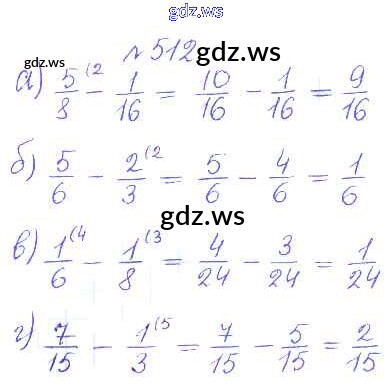 gdz.ws
№ 512 gdz.ws
gdz.ws
а) 5/8 (2 - 1/16 = 10/16 - 1/16 = 9/16
б) 5/6 - 2/3 (2 = 5/6 - 4/6 = 1/6
gdz.ws
в) 1/6 (4 - 1/8 (3 = 4/24 - 3/24 = 1/24
г) 7/15 - 1/3 (5 = 7/15 - 5/15 = 2/15
gdz.ws